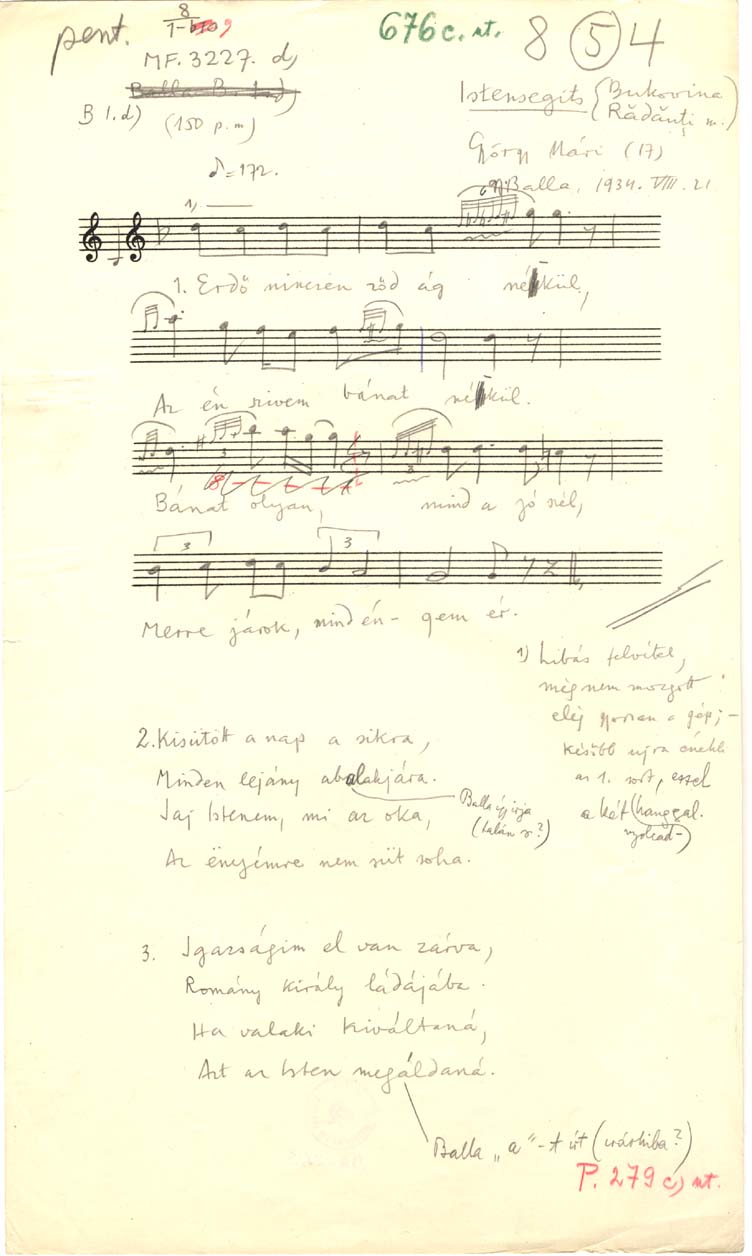 pent.
8
1-b3 9
MF. 3227. d)
Balla B. 1.d)
B 1. d)
(150 p. m)
♪=172.
676 c. sz.
8 (5) 4
Istensegits (Bukovina
Rădăuți m.)
György Mári (17)
Balla, 1934. VIII. 21
1)
1. Erdő nincsen zöd ág nékül,
Az én szivem bánat nékül.
3 3
Bánat olyan, mind a jó szél,
3 3
Merre járok, mind én-gem ér.
1) Hibás felvétel,
még nem mozgott
elég gyorsan a gép; -
később ujra énekli
az 1. sort, ezzel
a két hanggal.
(nyolcad-)
2. Kisütött a nap a sikra,
Minden lejány abalakjára.
Balla így irja
(talán r?)
Jaj Istenem, mi az oka,
Az ënyémre nem süt soha.
3. Igazságim el van zárva,
Román̄y király ládájába.
Ha valaki kiváltaná,
Azt az Isten megáldaná.
Balla „a"-t írt (iráshiba?)
P. 279 c) sz.